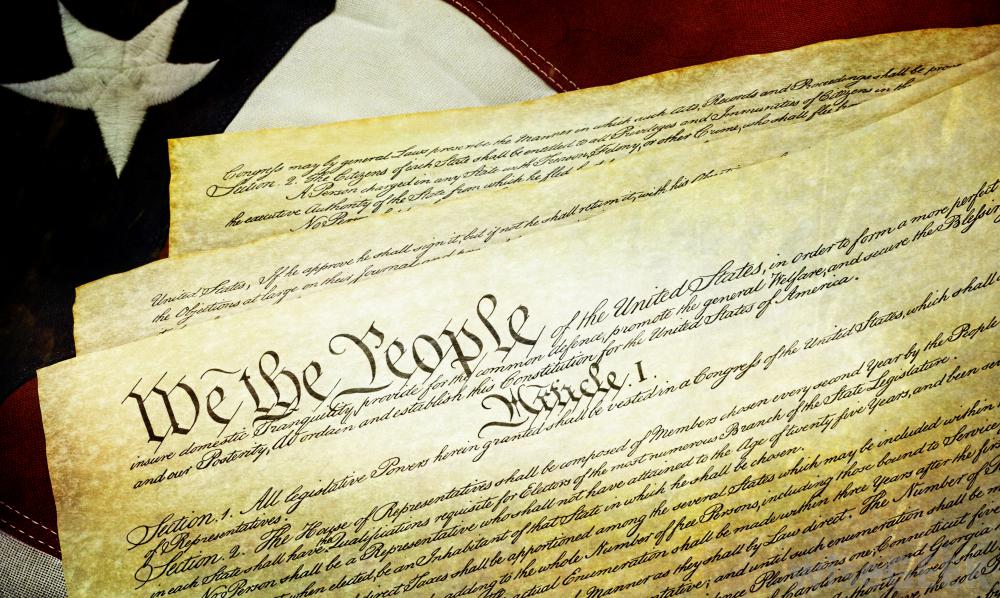 Congress may by general Laws prescribe the Manner in which such Acts, Records and Proceedings shall be
Section. 2. The Citizens of each State shall be entitled to all Privileges and Immunities of Citizens in the
A Person charged in any State with Treason, Felony, or other Crime, who shall flee
the executive Authority of the State from which he fled
No
United States; If he approve he shall sign it, but if not he shall return it, with his
the Objections at large on their Journal
We the People of the United States, in order to form a more perfect
insure domestic Tranquility, provide for the common defence, promote the general Welfare, and secure the
and our Posterity, do ordain and establish this Constitution for the United States of America.
Article. I.
Section. 1. All legislative Powers herein granted shall be vested in a Congress of the United States, which shall
of Representatives.
Section. 2. The House of Representatives shall be composed of Members chosen every second Year by the People
in each State shall have the Qualifications requisite for Electors of the most numerous Branch of the State Legislature.
No Person shall be a Representative who shall not have attained to the Age of twenty five Years, and been
when elected, be an Inhabitant of that State in which he shall be chosen.
direct Taxes shall be apportioned among the several States which may be included within
adding to the whole Number of free Persons, including those bound to Service
actual Enumeration shall be made within three Years after the first
Manner as they shall by Law direct. The Number of
and until such enumeration shall be
Plantations one, Connecticut five
five, and Georgia